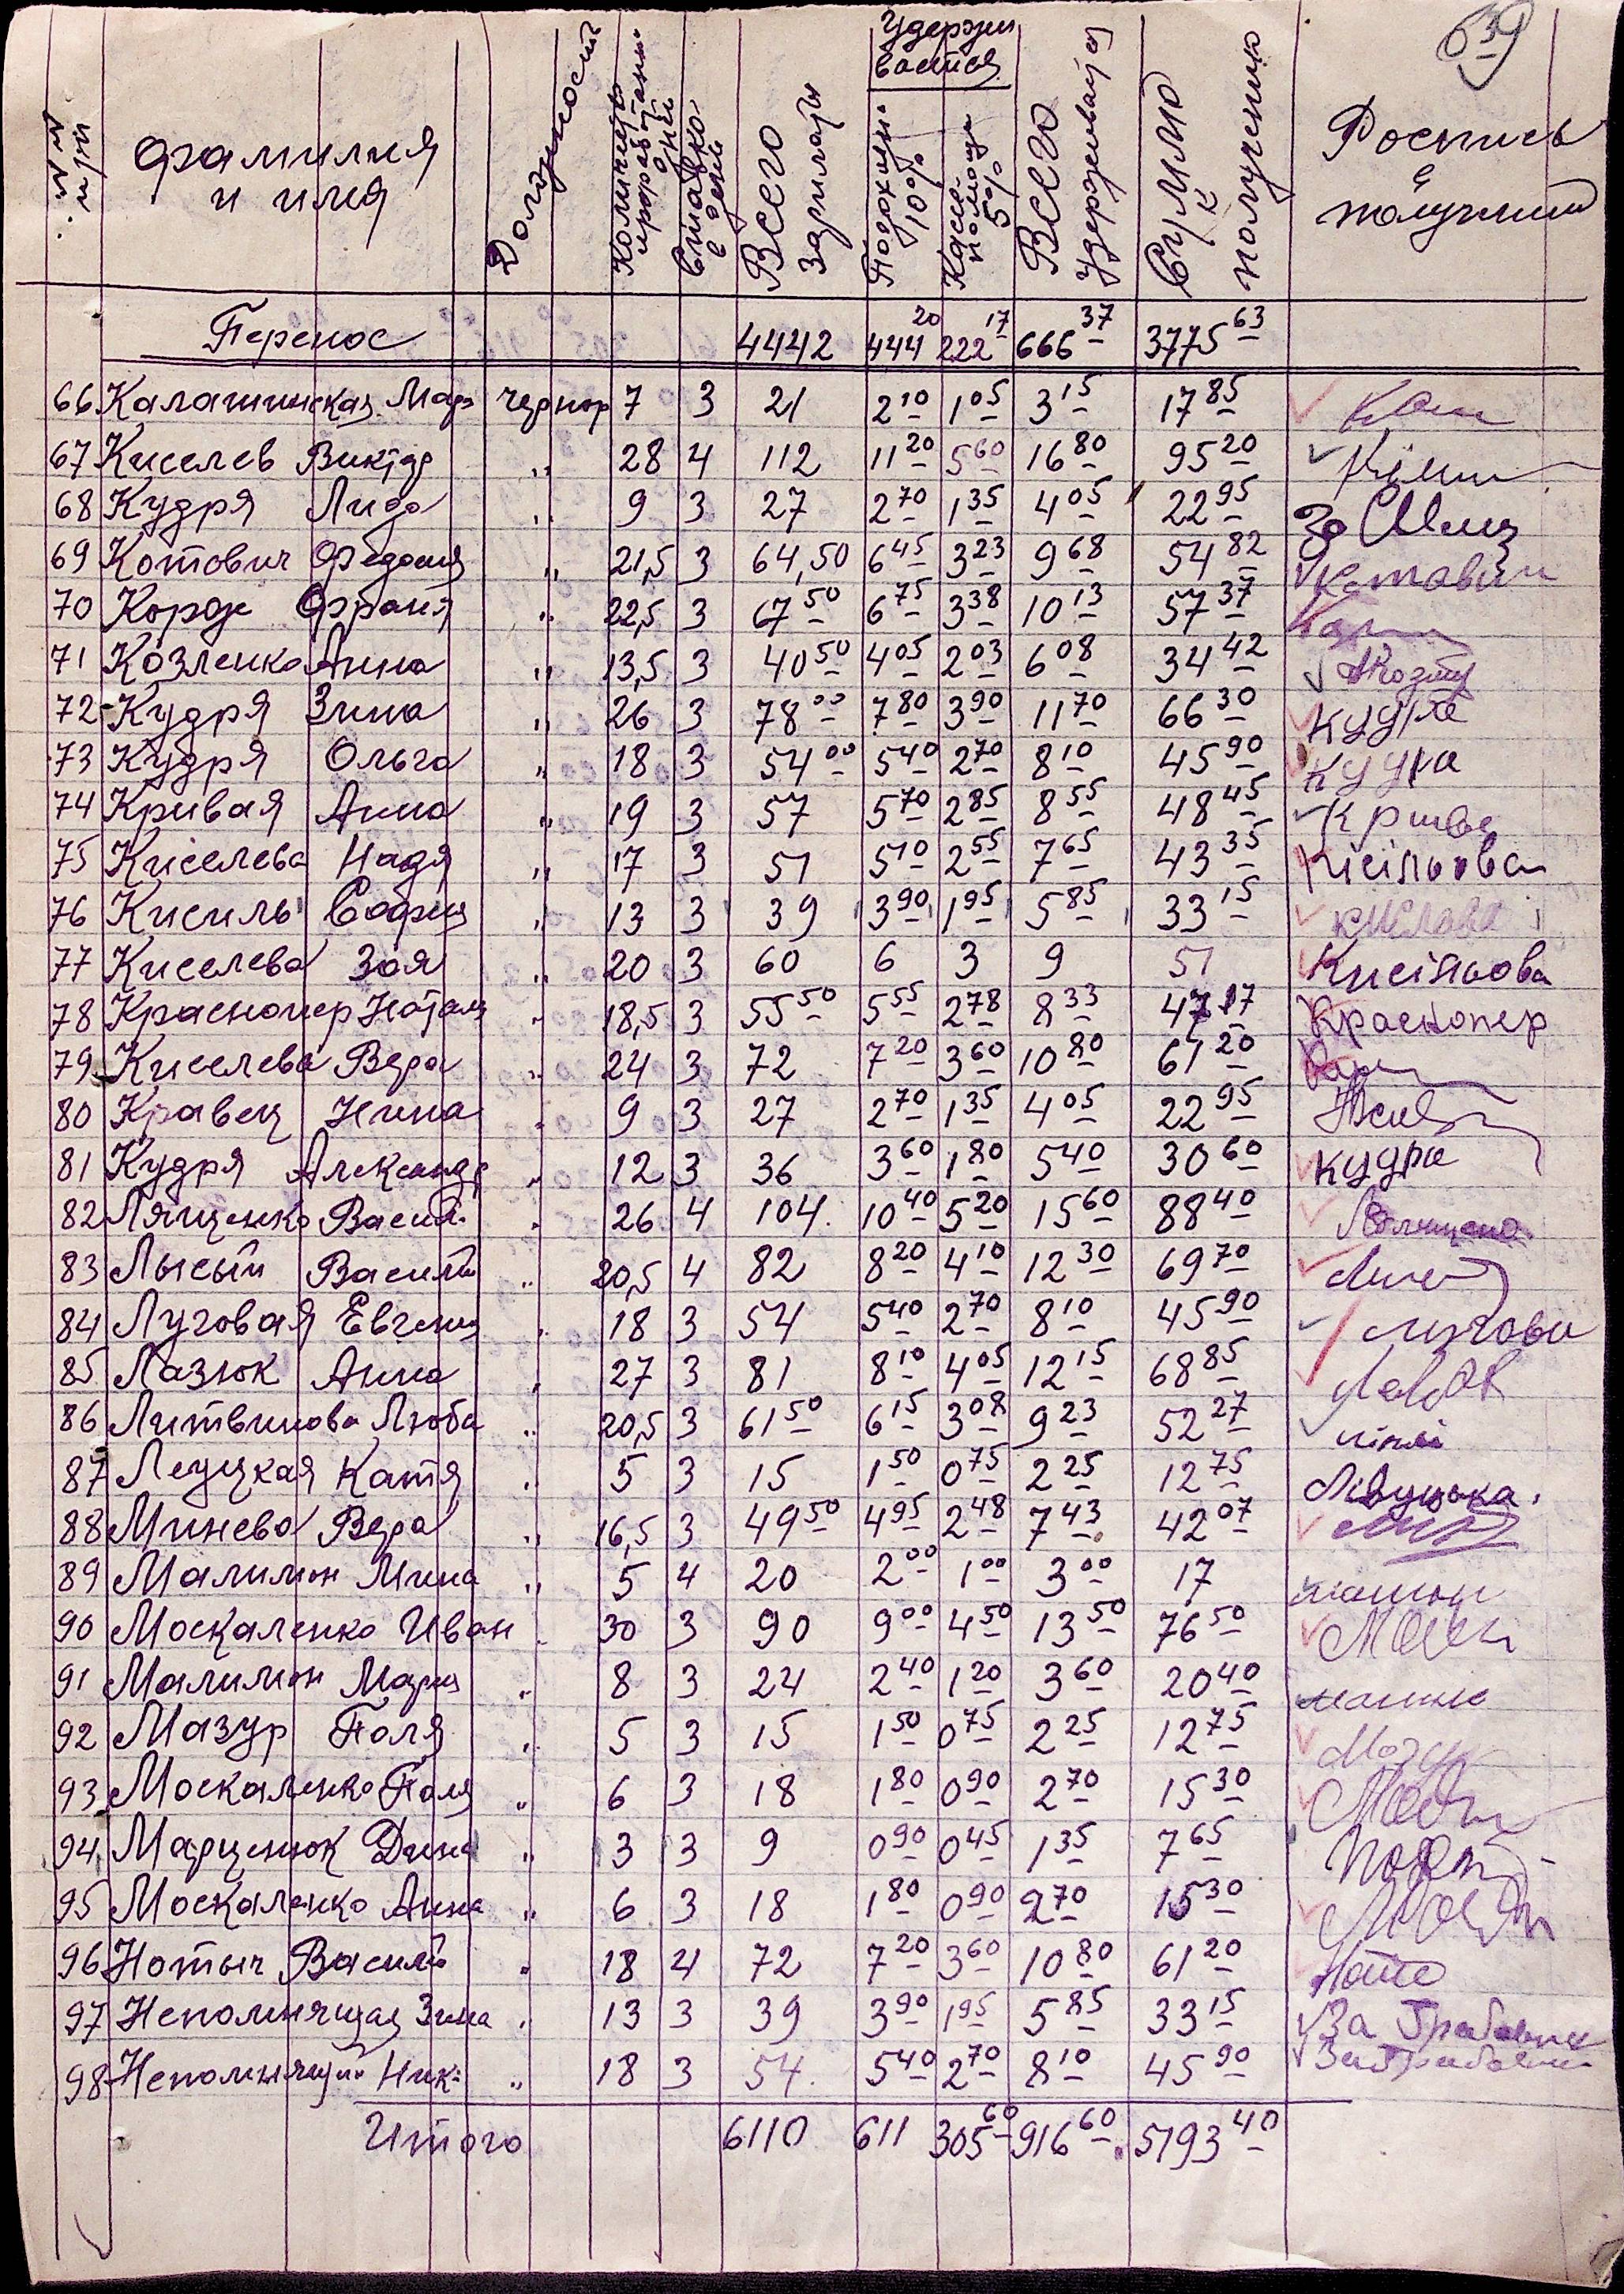 639
№№ п/п
Фамилия и имя
Должность
Количеств. проработаны дней
Ставка в день
Всего зарплаты
Удержи вается
Подоходн. 10%
Кассе помощи 5%
Всего удерживается
Сумма к получению
Роспись в получении
Перенос 4442 444 20 222 17 666 37 3775 63
66 Калашинская Мар. чернор 7 3 21 2 10 1 05 3 15 17 85
67 Киселев Виктор " 28 4 112 11 20 5 60 16 80 95 20
68 Кудря Лида " 9 3 27 2 70 1 35 4 05 22 95 За
69 Котович Федосия " 21,5 3 64,50 6 45 3 23 9 68 54 82 Котович
70 Корж Франя " 22,5 3 67 50 6 75 3 38 10 13 57 37
71 Козленко Анна " 13,5 3 40 50 4 05 2 03 6 08 34 42
72 Кудря Зина " 26 3 78 00 7 80 3 90 11 70 66 30
73 Кудря Ольга " 18 3 54 00 5 40 2 70 8 10 45 90
74 Кривая Анна " 19 3 57 5 70 2 85 8 55 48 45
75 Киселева Надя " 17 3 51 5 10 2 55 7 65 43 35 Кісільова
76 Кисиль София " 13 3 39 3 90 1 95 5 85 33 15
77 Киселева Зоя " 20 3 60 6 3 9 51 Кисільова
78 Краснопер Наталя " 18,5 3 55 50 5 55 2 78 8 33 47 17 Краснопер
79 Киселева Вера " 24 3 72 7 20 3 60 10 80 61 20
80 Кравец Нина " 9 3 27 2 70 1 35 4 05 22 95
81 Кудря Александр " 12 3 36 3 60 1 80 5 40 30 60 Кудря
82 Лященко Васил. " 26 4 104 10 40 5 20 15 60 88 40
83 Лысый Василий " 20,5 4 82 8 20 4 10 12 30 69 70
84 Луговая Евгения " 18 3 54 5 40 2 70 8 10 45 90 Лугова
85 Лазюк Анна " 27 3 81 8 10 4 05 12 15 68 85
86 Литвинова Люба " 20,5 3 61 50 6 15 3 08 9 23 52 27
87 Леуцкая Катя " 5 3 15 1 50 0 75 2 25 12 75
88 Минева Вера " 16,5 3 49 50 4 95 2 48 7 43 42 07
89 Малимон Мина " 5 4 20 2 00 1 00 3 00 17
90 Москаленко Иван " 30 3 90 9 00 4 50 13 50 76 50
91 Малимон Мария " 8 3 24 2 40 1 20 3 60 20 40
92 Мазур Поля " 5 3 15 1 50 0 75 2 25 12 75 Мазур
93 Москаленко Поля " 6 3 18 1 80 0 90 2 70 15 30
94 Марценюк Дина " 3 3 9 0 90 0 45 1 35 7 65
95 Москаленко Анна " 6 3 18 1 80 0 90 2 70 15 30
96 Нотыч Василий " 18 4 72 7 20 3 60 10 80 61 20
97 Непомнящая Зина " 13 3 39 3 90 1 95 5 85 33 15 За
98 Непомнящий Ник. " 18 3 54 5 40 2 70 8 10 45 90 За
Итого 6110 611 305 60 916 60 5193 40